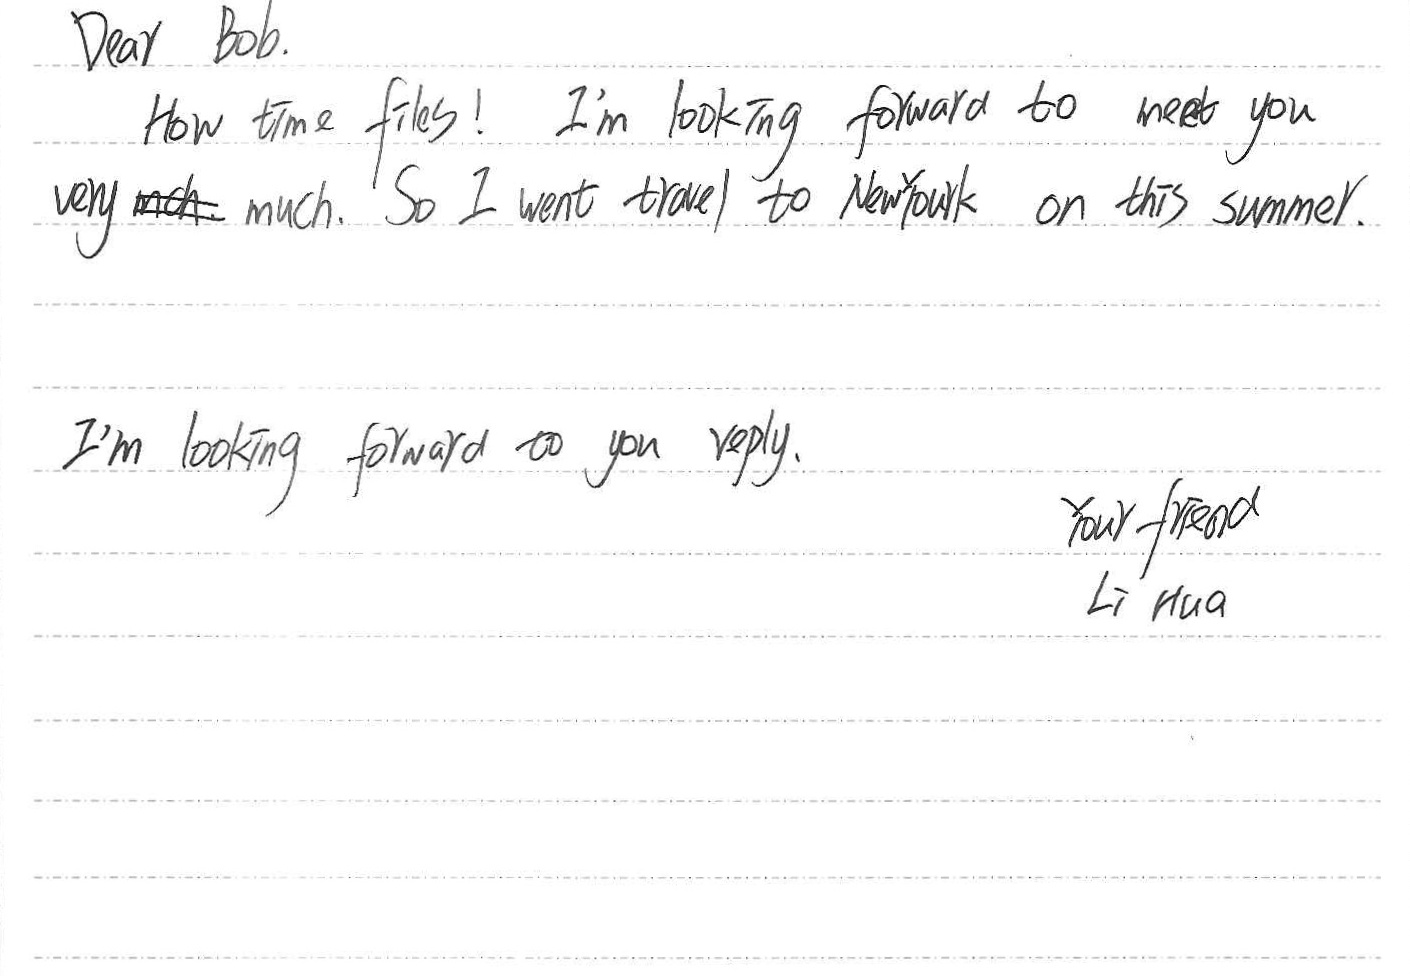 Dear Bob.
How time files! I'm looking forward to meet you
very much. So I went travel to NewYourk on this summer.
I'm looking forward to you reply.
Your friend
Li Hua